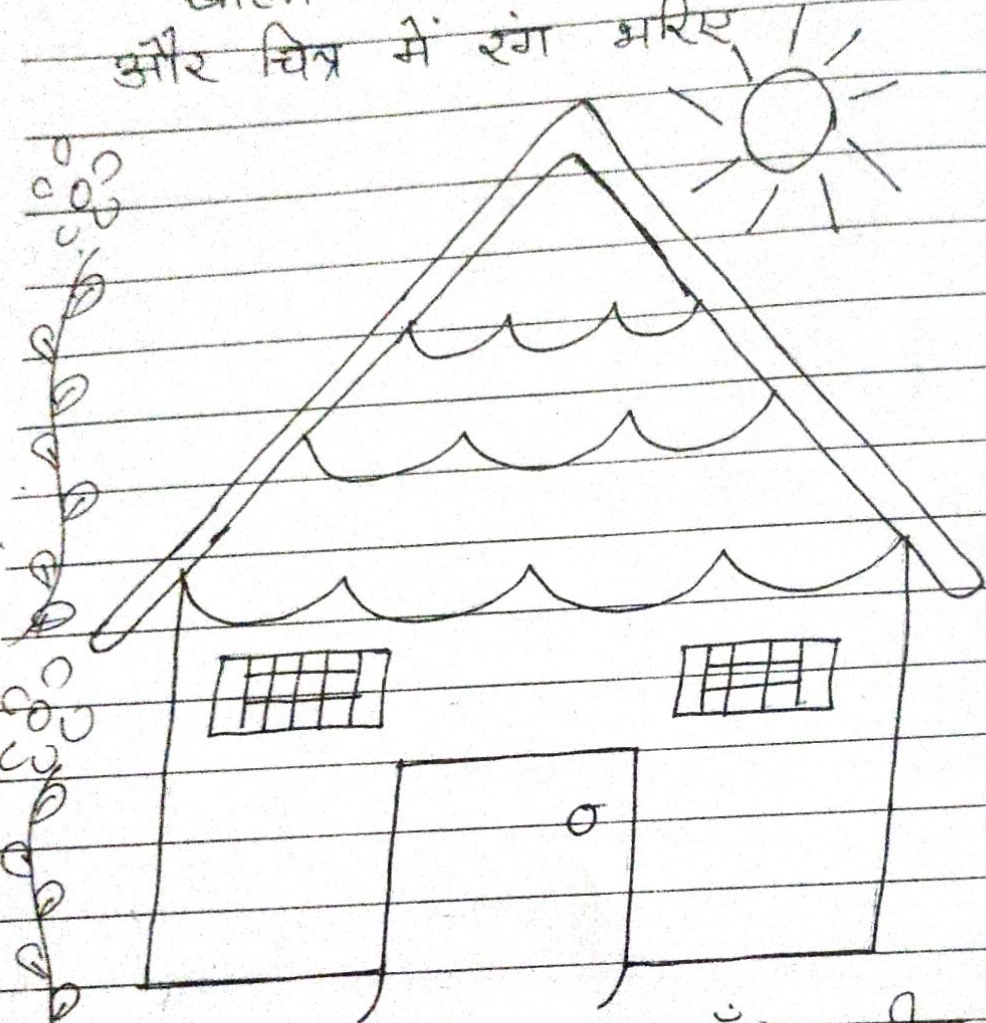 और चित्र में रंग भरिए